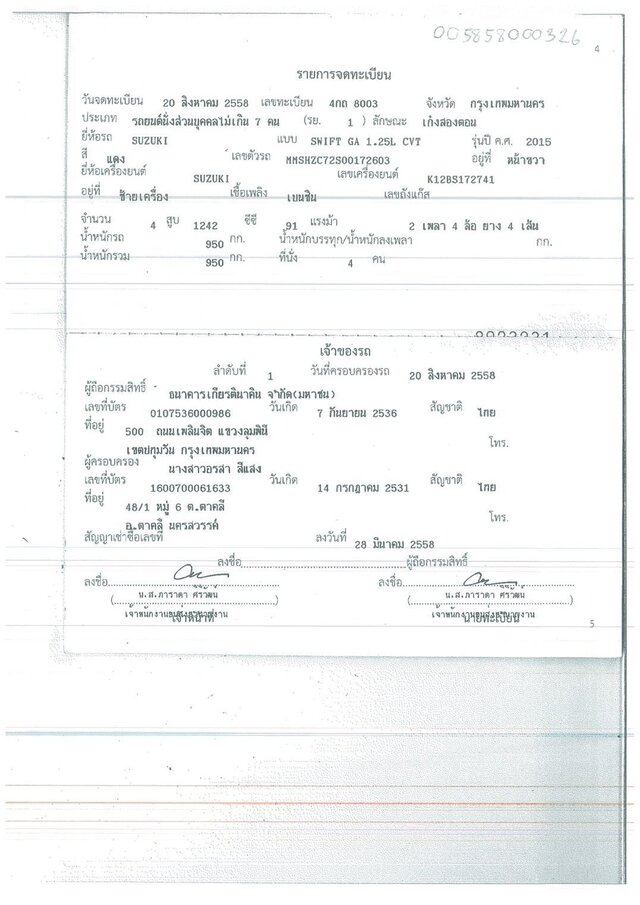 005858000326
4
รายการจดทะเบียน
วันจดทะเบียน 20 สิงหาคม 2558 เลขทะเบียน 4กถ 8003 จังหวัด กรุงเทพมหานคร
ประเภท รถยนต์นั่งส่วนบุคคลไม่เกิน 7 คน (รย. 1 ) ลักษณะ เก๋งสองตอน
ยี่ห้อรถ SUZUKI แบบ SWIFT GA 1.25L CVT รุ่นปี ค.ศ. 2015
สี แดง เลขตัวรถ MMSHZC72S00172603 อยู่ที่ หน้าขวา
ยี่ห้อเครื่องยนต์ SUZUKI เลขเครื่องยนต์ K12BS172741
อยู่ที่ ซ้ายเครื่อง เชื้อเพลิง เบนซิน เลขถังแก๊ส
จำนวน 4 สูบ 1242 ซีซี 91 แรงม้า 2 เพลา 4 ล้อ ยาง 4 เส้น
น้ำหนักรถ 950 กก. น้ำหนักบรรทุก/น้ำหนักลงเพลา กก.
น้ำหนักรวม 950 กก. ที่นั่ง 4 คน
เจ้าของรถ
ลำดับที่ 1 วันที่ครอบครองรถ 20 สิงหาคม 2558
ผู้ถือกรรมสิทธิ์ ธนาคารเกียรตินาคิน จำกัด(มหาชน)
เลขที่บัตร 0107536000986 วันเกิด 7 กันยายน 2536 สัญชาติ ไทย
ที่อยู่ 500 ถนนเพลินจิต แขวงลุมพินี
เขตปทุมวัน กรุงเทพมหานคร โทร.
ผู้ครอบครอง นางสาวอรสา สีแสง
เลขที่บัตร 1600700061633 วันเกิด 14 กรกฎาคม 2531 สัญชาติ ไทย
ที่อยู่ 48/1 หมู่ 6 ต.ตาคลี
อ.ตาคลี นครสวรรค์ โทร.
สัญญาเช่าซื้อเลขที่ ลงวันที่ 28 มีนาคม 2558
ลงชื่อ ผู้ถือกรรมสิทธิ์
ลงชื่อ ลงชื่อ
(น.ส.ภาราดา ศิริวัฒน์) (น.ส.ภาราดา ศิริวัฒน์)
เจ้าหน้าที่ นายทะเบียน
5